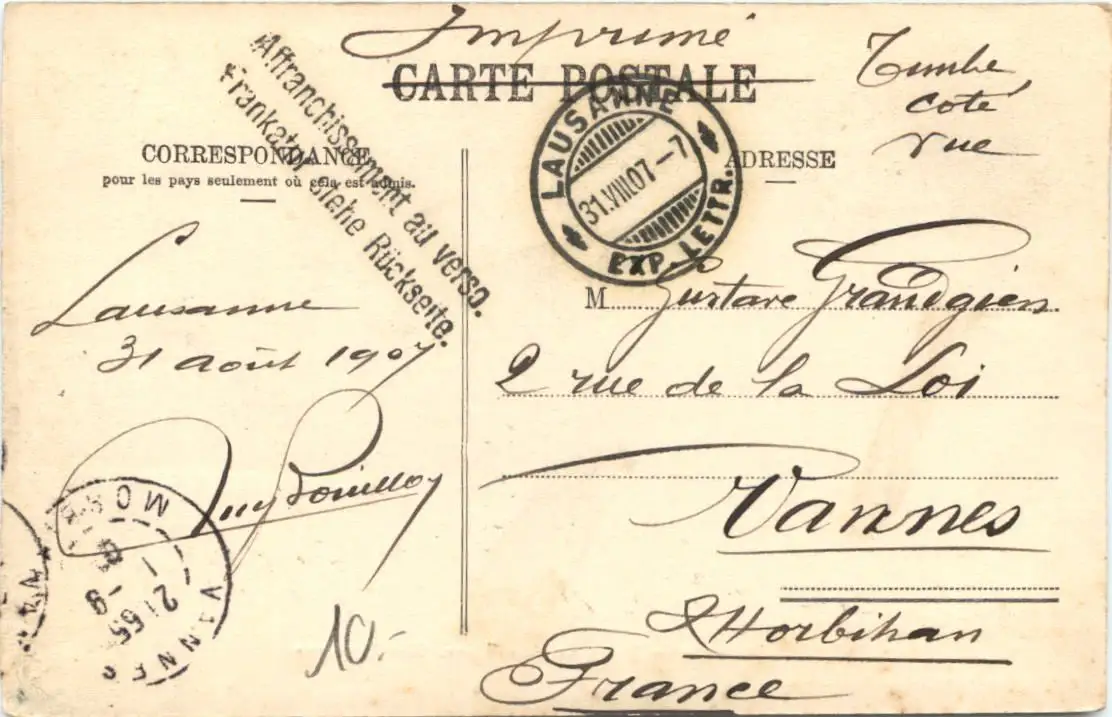 Imprimé
CARTE POSTALE
Timbre
coté
vue
Affranchissement au verso.
Frankatur siehe Rückseite.
CORRESPONDANCE
pour les pays seulement où cela est admis.
ADRESSE
LAUSANNE
31.VIII.07–7
EXP. LETTR.
Lausanne
31 août 1907
M Gustave Grandgien
2 rue de la Loi
Vannes
Morbihan
France
VANNES
MORBIHAN
21 55
1 -9
10.-